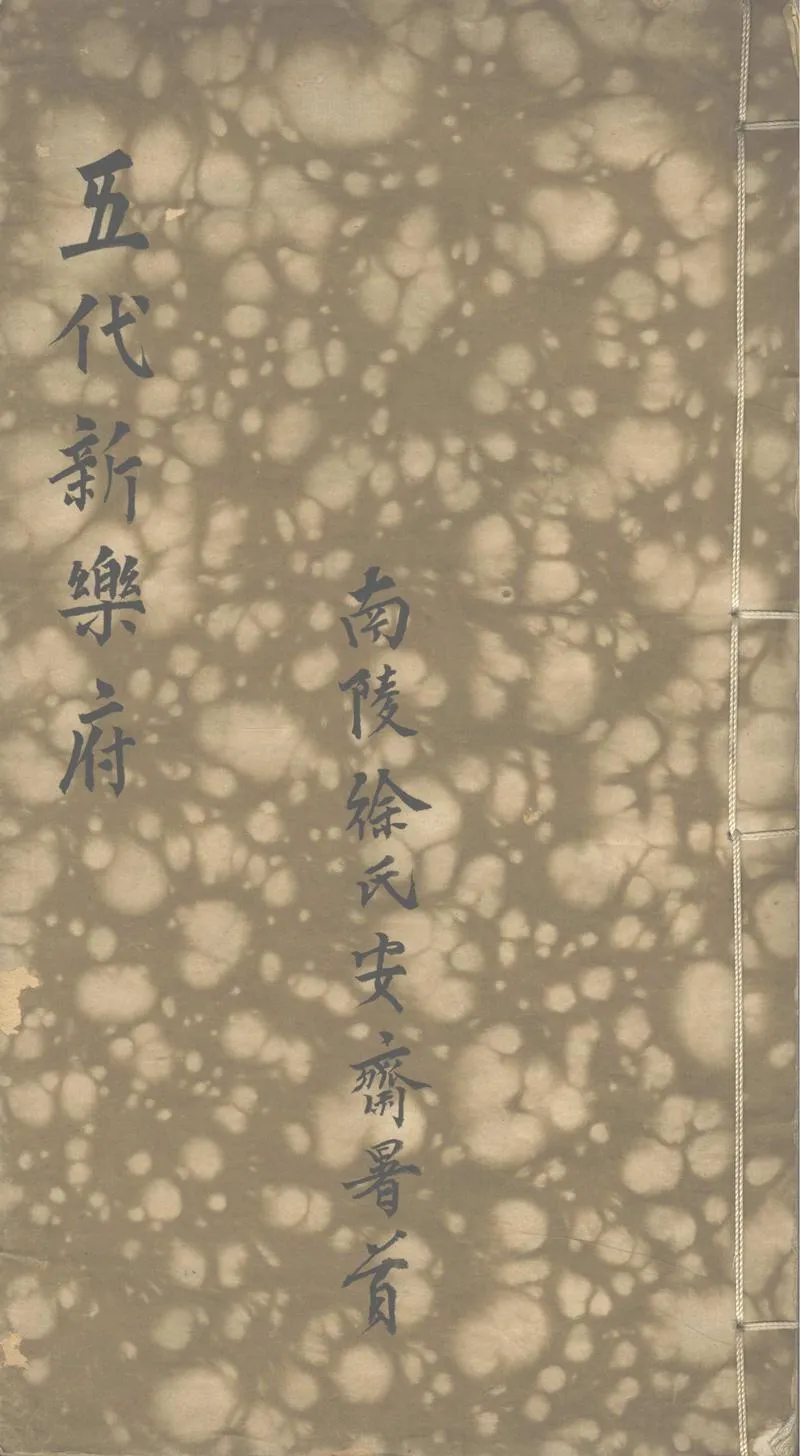 五代新樂府
南陵徐氏安齋暑首